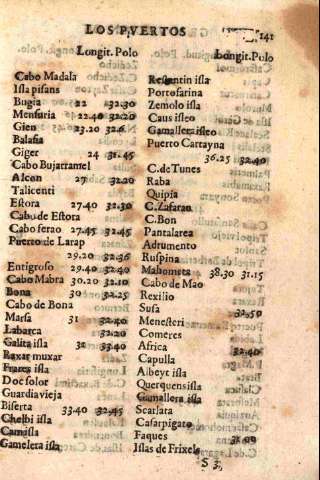 LOS PVERTOS 141
Longit. Polo
Cabo Madala
Isla pisans
Bugia 22 32.30
Mensuria 22.40 32.20
Gien 23.20 32.6
Balafia
Giger 24 31.45
Cabo Bujarramel
Alcon 27 32.20
Talicenti
Estora 27.40 32.30
Cabo de Estora
Cabo ferao 27.45 32.45
Puerto de Larap
29.20 32.36
Entigroso 29.40 32.40
Cabo Mabra 30.20 32.10
Bona 30 32.25
Cabo de Bona
Marsa 31 32.40
Labarca 32.20
Galita isla 32 33.40
Raxar muxar
Frares isla
Doc solor
Guardia vieja
Biserta 33.40 32.45
Chelbi isla
Camisla
Gamelera isla
Longit. Polo
Ressentin isla
Portofarina
Zemolo isla
Caus isleo
Gamallera isleo
Puerto Cartayna
36.25 32.40
C. de Tunes
Raba
Quipia
C. Zafaran
C. Bon
Pantalarea
Adrumento
Ruspina
Mahometa 38.30 31.15
Cabo de Mao
Rexilio
Susa
32.50
Menesteri
Comeres
Africa
32.40
Capulla
Aibeyt isla
Querquens isla
Gamallera isla
Scarsata
Casarpigato
Faques
31.00
Islas de Frixels
S 3